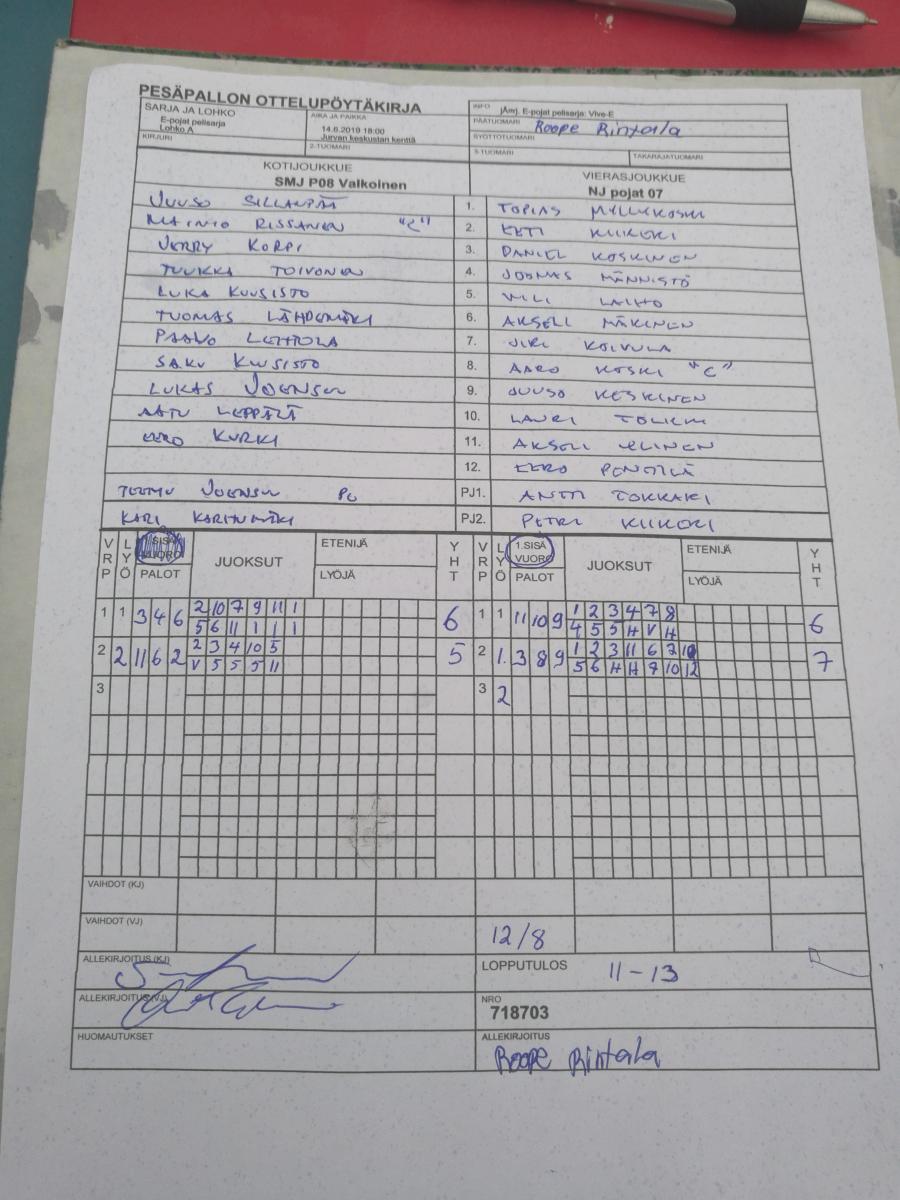 PESÄPALLON OTTELUPÖYTÄKIRJA
SARJA JA LOHKO
E-pojat pelisarja
Lohko A
AIKA JA PAIKKA
14.6.2019 18:00
Jurvan keskustan kenttä
INFO
jÄmj. E-pojat pelisarja: Vive-E
PÄÄTUOMARI Roope Rintala
SYÖTTÖTUOMARI
KIRJURI
2-TUOMARI
3-TUOMARI
TAKARAJATUOMARI
KOTIJOUKKUE
SMJ P08 Valkoinen
VIERASJOUKKUE
NJ pojat 07
JUUSO SILLANPÄÄ 1. TOPIAS MYLLYKOSKI
MAINIO RISSANEN "C" 2. EETI KIIKERI
JERRY KORPI 3. DANIEL KOSKINEN
TUUKKA TOIVONEN 4. JOONAS MÄNNISTÖ
LUKA KUUSISTO 5. VILI LAIHO
TUOMAS LÄHDEMÄKI 6. AKSELI MÄKINEN
PAAVO LEHTOLA 7. JIRI KOIVULA
SAKU KUUSISTO 8. AARO KOSKI "C"
LUKAS JOENSUU 9. JUUSO KESKINEN
AATU LEPPÄLÄ 10. LAURI
EERO KURKI 11. AKSELI
12. EERO PENTTILÄ
TEEMU JOENSUU PJ1. ANTTI TOKKARI
KARI KARHUMÄKI PJ2. PETRI KIIKERI
VRP LYÖ 1.SISÄ VUORO PALOT JUOKSUT ETENIJÄ LYÖJÄ YHT VRP LYÖ 1.SISÄ VUORO PALOT JUOKSUT ETENIJÄ LYÖJÄ YHT
1 1 3 4 6 2 10 7 9 11 1 6 1 1 11 10 9 1 2 3 4 7 8 6
5 6 11 1 1 1 4 5 5 H V H
2 2 11 6 2 2 3 4 10 5 5 2 1. 3 8 9 1 2 3 11 6 7 10 7
V 5 5 5 11 5 6 H H 9 10 12
3 3 2
VAIHDOT (KJ)
VAIHDOT (VJ)
12/8
ALLEKIRJOITUS (KJ)
LOPPUTULOS 11-13
ALLEKIRJOITUS (VJ)
NRO
718703
HUOMAUTUKSET
ALLEKIRJOITUS
Roope Rintala